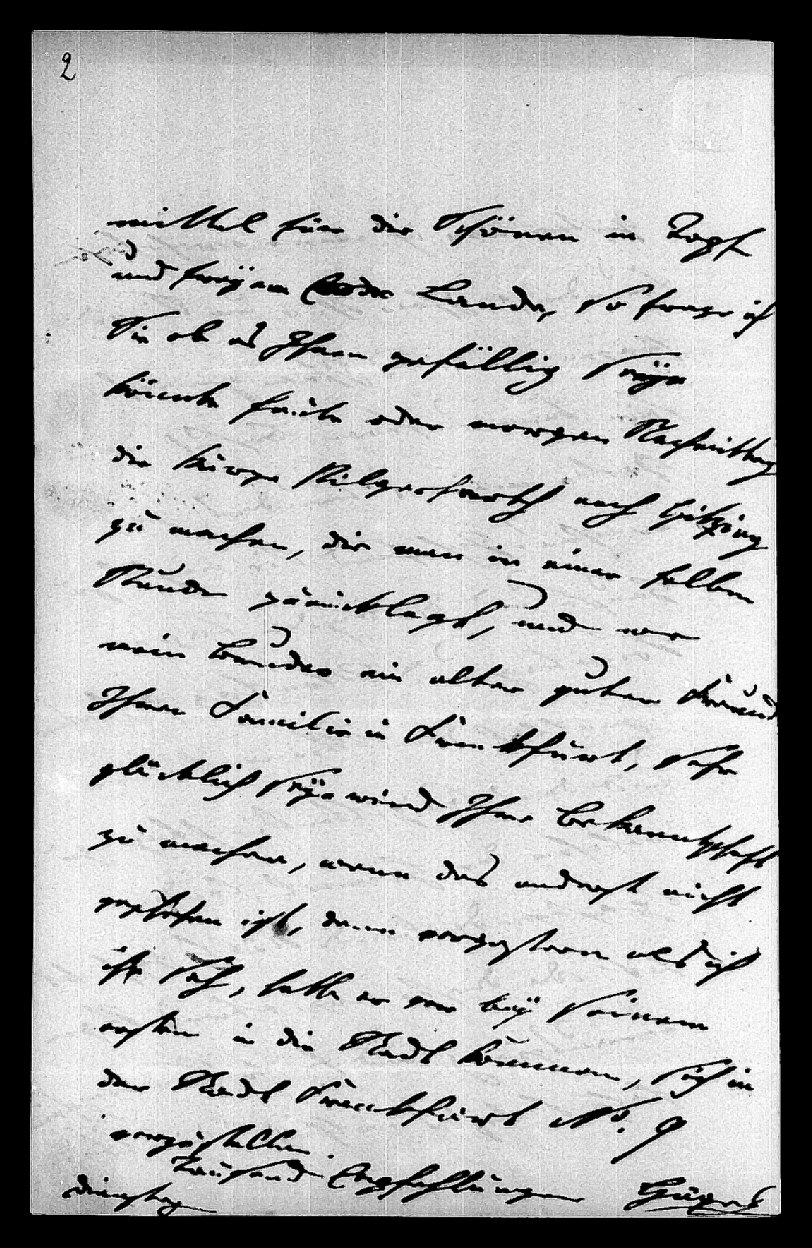 2
mittel für die Schönen in Topf
und freyem Lande, so frage ich
Sie ob es Ihnen gefällig seyn
könnte heute oder morgen Nachmittag
die kurze Pilgerfarth nach Hitzing
zu machen, die man in einer halben
Stunde zurücklegt, und wo
mein Bruder ein alter guter Freund
Ihrer Familie in Frankfurt, sehr
glücklich seyn wird Ihre Bekanntschaft
zu machen, wenn das anderst nicht
geschehen ist, denn vorgestern als ich
ihn sah, hatte er vor bey seinem
ersten in die Stadt kommen, sich in
der Stadt Frankfurt No. 9
vorzustellen.
Tausend Empfehlungen Hügel
dienstag